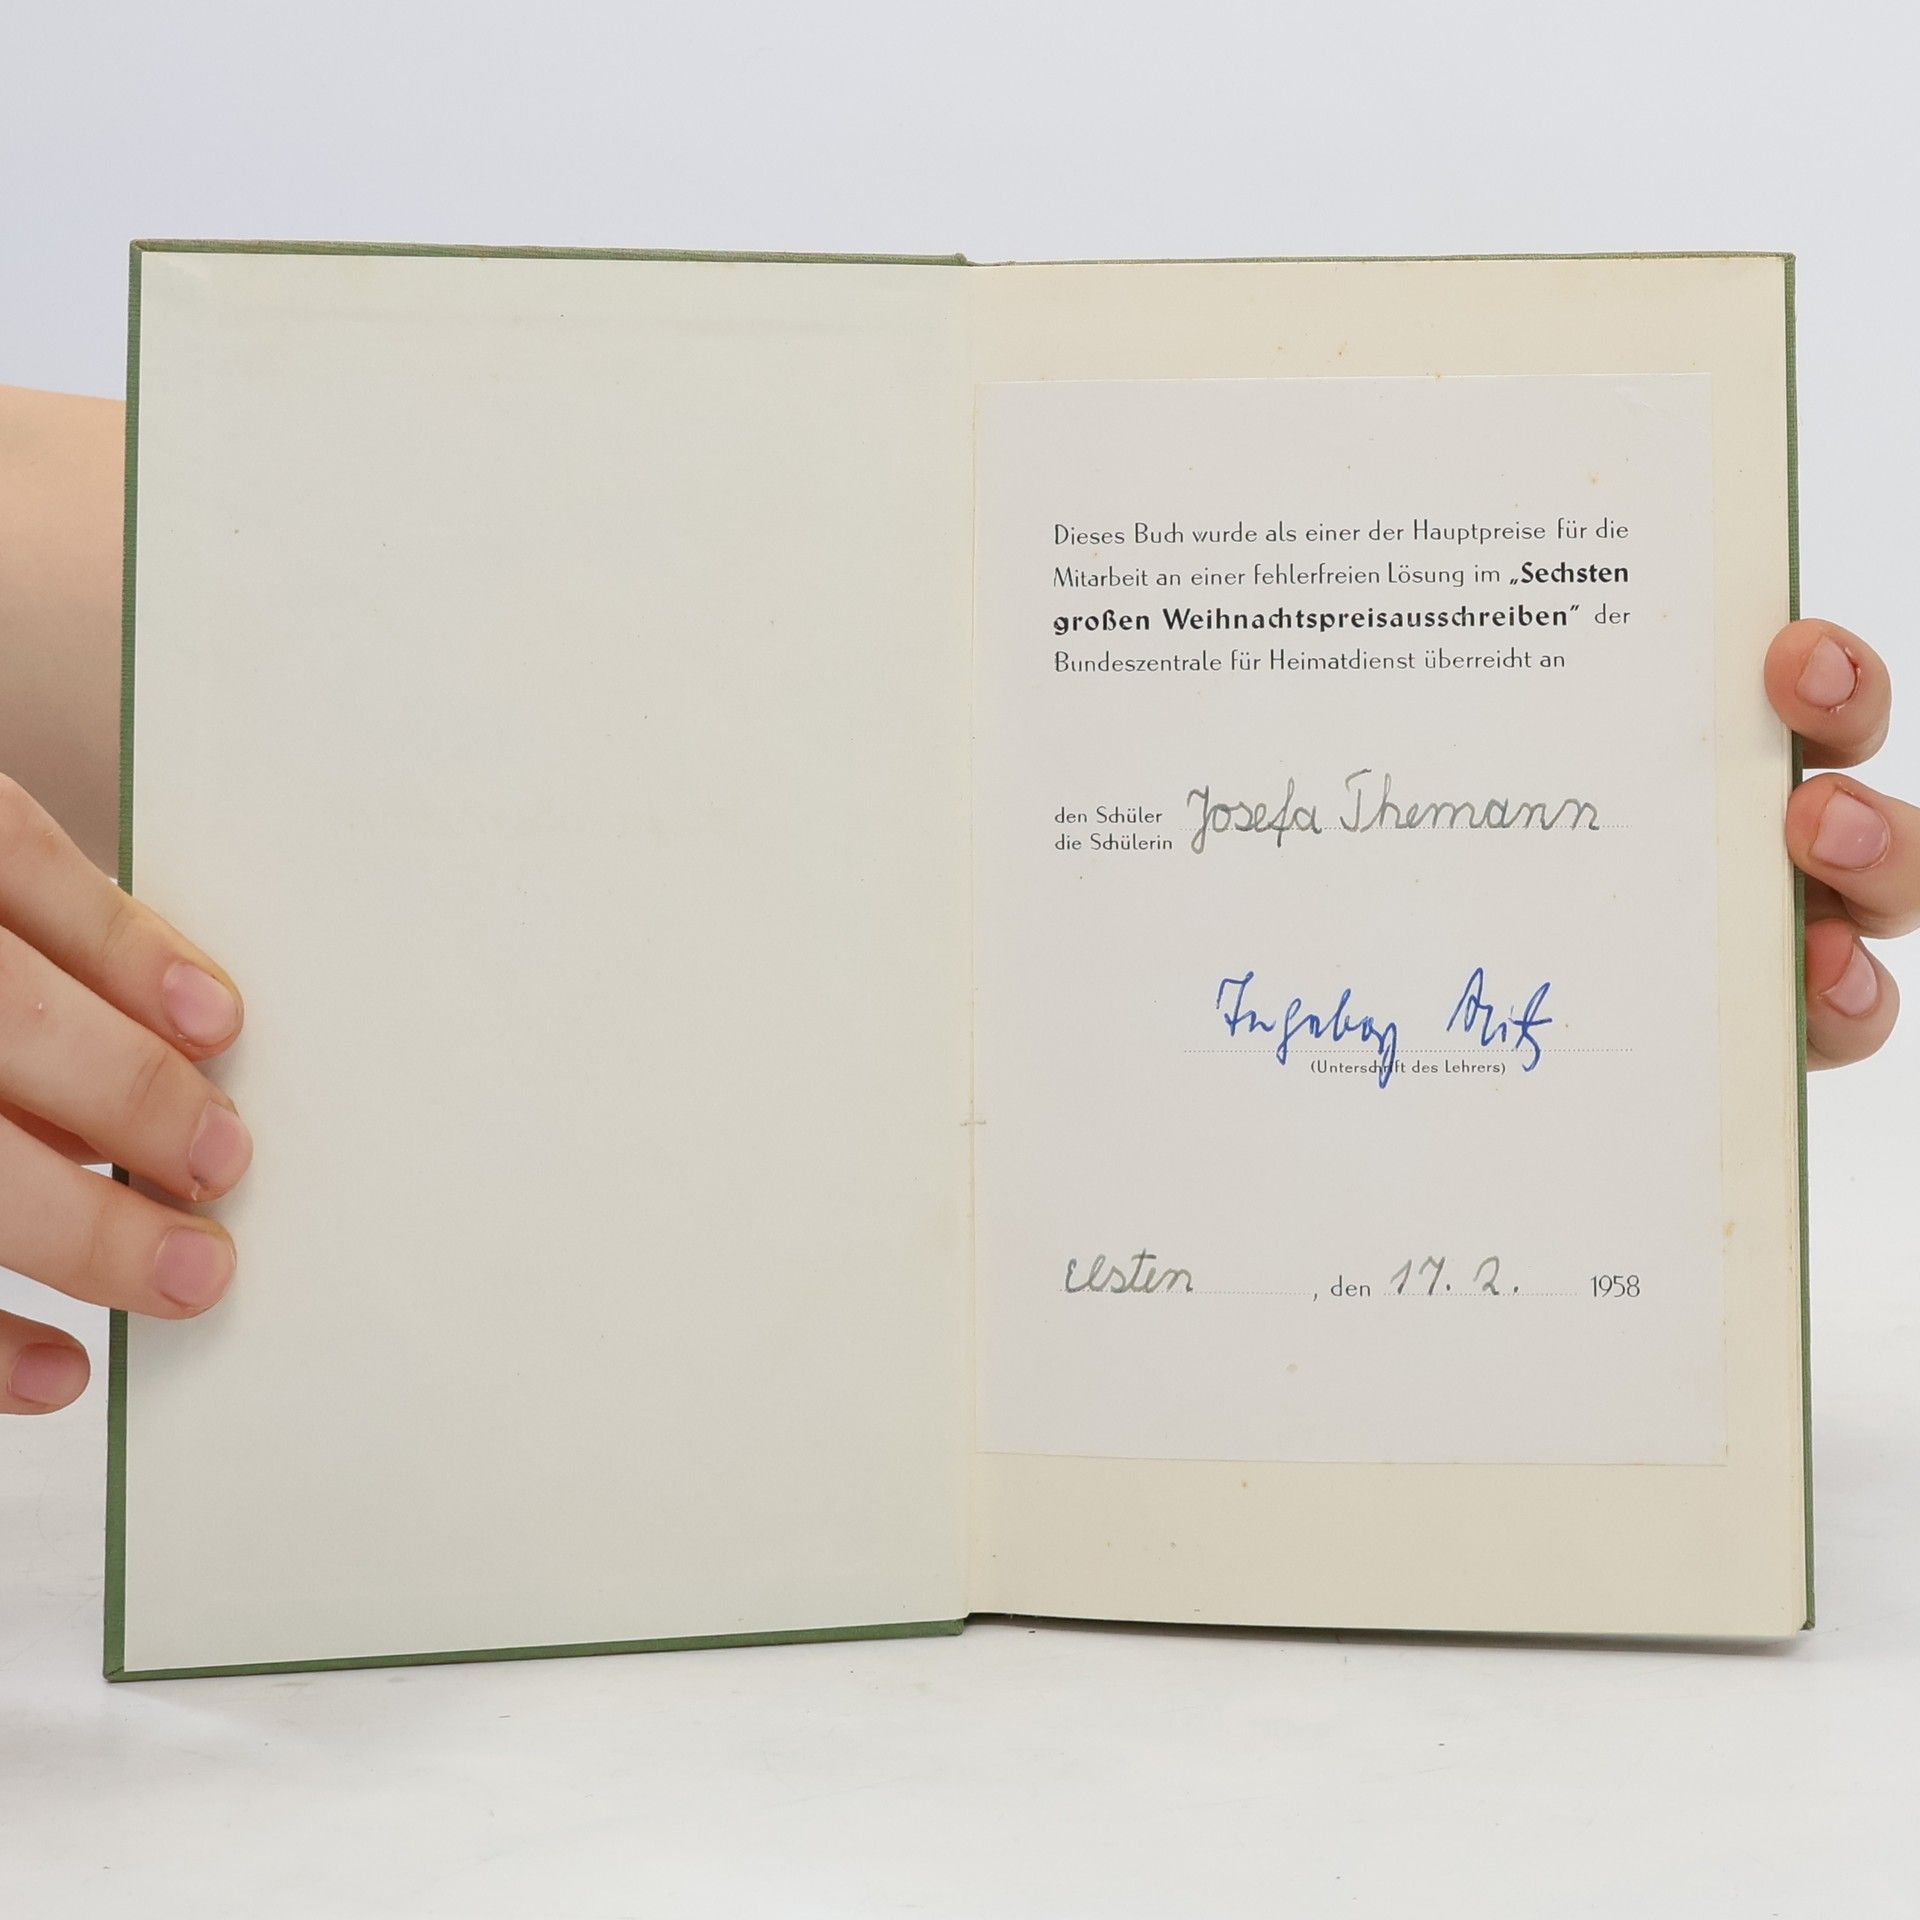 Dieses Buch wurde als einer der Hauptpreise für die
Mitarbeit an einer fehlerfreien Lösung im „Sechsten
großen Weihnachtspreisausschreiben" der
Bundeszentrale für Heimatdienst überreicht an
den Schüler
die Schülerin Josefa Themann
Ingeborg
(Unterschrift des Lehrers)
Elsten, den 17. 2. 1958